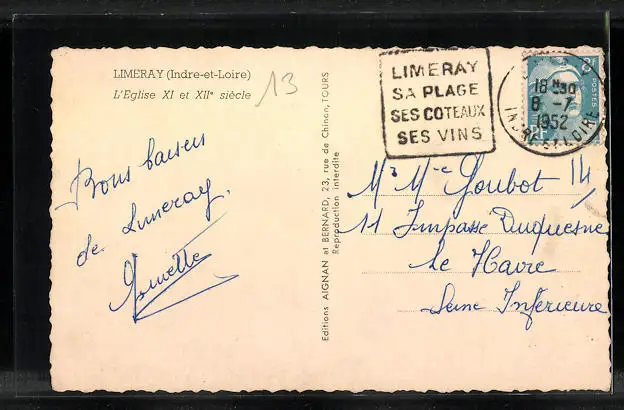 LIMERAY (Indre-et-Loire)
L'Eglise XI et XIIe siècle
13
LIMERAY
SA PLAGE
SES COTEAUX
SES VINS
18 H30
8 -7
1952
INDRE-ET-LOIRE
POSTES
Bons baisers
de Limeray.
Ginette
Editions AIGNAN et BERNARD, 23, rue de Chinon, TOURS
Reproduction interdite
Mr Mme Goubot
11 Impasse Duquesne
Le Havre
Seine Inférieure